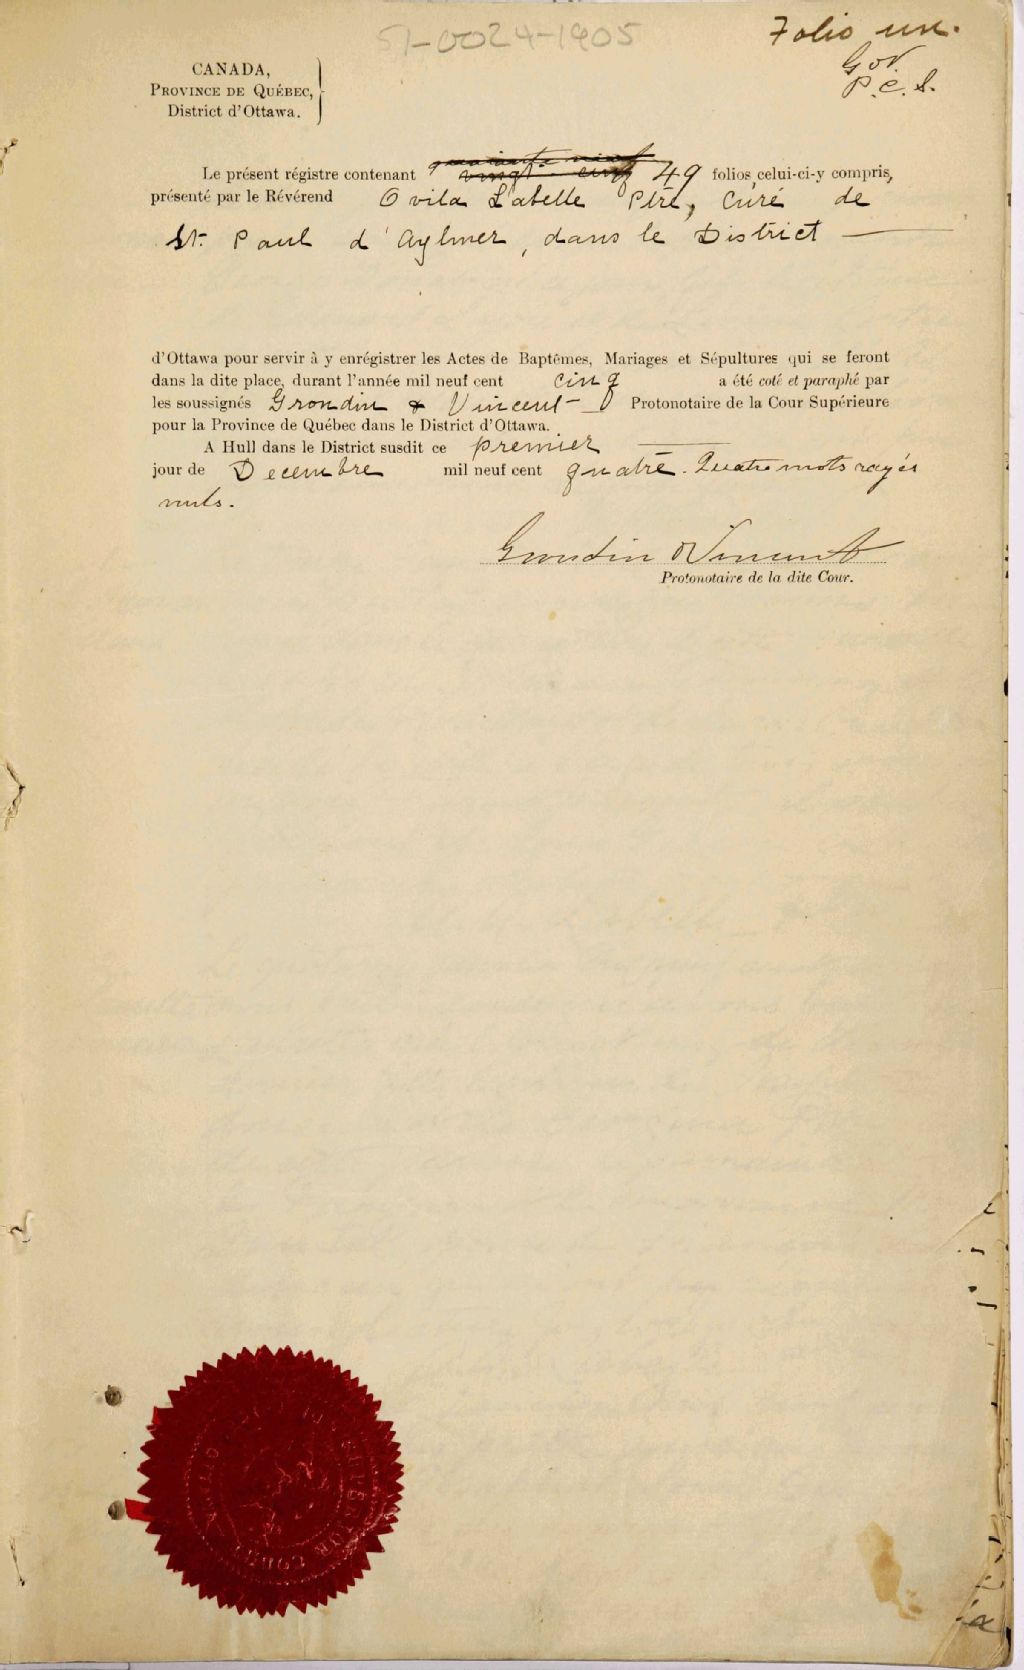 51-0024-1905
Folio un.
G & V.
P. C. S.
CANADA,
PROVINCE DE QUÉBEC,
District d'Ottawa.
Le présent régistre contenant quarante neuf vingt-cinq 49 folios celui-ci-y compris,
présenté par le Révérend Ovila Labelle Ptre, Curé de
St. Paul d'Aylmer, dans le District
d'Ottawa pour servir à y enrégistrer les Actes de Baptêmes, Mariages et Sépultures qui se feront
dans la dite place, durant l'année mil neuf cent cinq a été coté et paraphé par
les soussignés Grondin & Vincent Protonotaire de la Cour Supérieure
pour la Province de Québec dans le District d'Ottawa.
A Hull dans le District susdit ce premier
jour de Decembre mil neuf cent quatre. Quatre mots rayés
nuls.
Grondin & Vincent
Protonotaire de la dite Cour.
SUPERIOR COURT